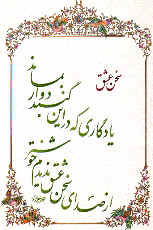 سخن عشق
از صدای سخن عشق ندیدم خوشتر
یادگاری که در این گنبد دوار بماند